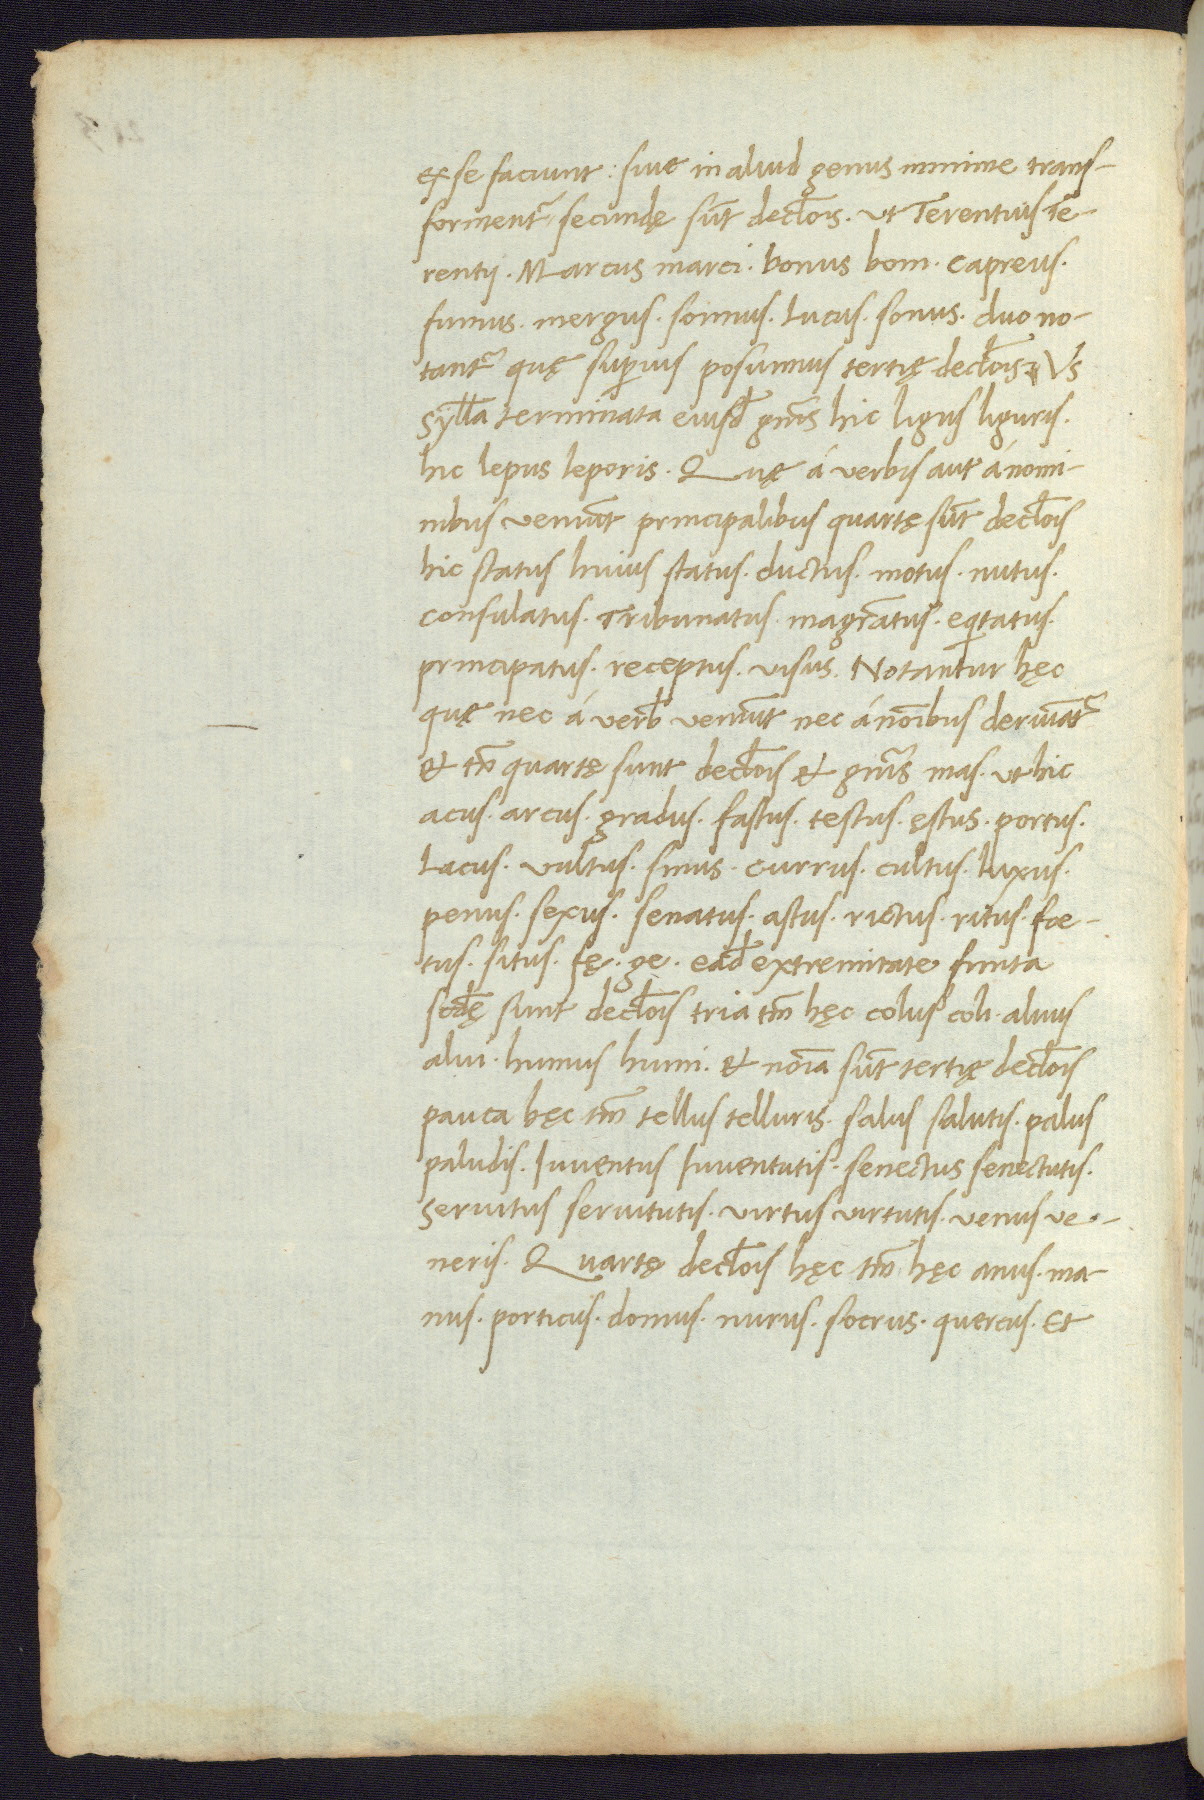 ex se faciunt : siue in aliud genus minime trans-
formentᷣ secundę sūt decło͞is. ut Terentius Te-
rentij. Marcus marci. bonus boni. capreus.
fumus. mergus. somnus. lucus. sonus. duo no-
tantᷣ quę sup̄ius posuimus tertię decło͞is Vs
syłła terminata eiusđ gn̄is hic ligus liguris.
hic lepus leporis. Quę á verbis aut á nomi-
nibus veniūt principalibus quartę sūt decło͞is
hic status huius status. ductus. motus. nutus.
consulatus. Tribunatus. magr̄atus. eq̇tatus.
principatus. receptus. visus. Notantur hęc
quę nec á verƀ veniūt nec á no͞ibus deriuātᷣ
& tn̄ quartę sunt decło͞is & gn̄is mas. ut hic
acus. arcus. gradus. fastus. testus. ęstus. portus.
Lacus. vultus. sinus. currus. cultus. luxus.
penus. sexus. senatus. astus. rictus. ritus. foe-
tus. situs. fę. ge. eađ extremitate finita
scđę sunt decło͞is tria tm̄ hęc colus coli. aluus
alui. humus humi. & no͞ia sūt tertię decło͞is
pauca hęc tm̄ tellus telluris. salus salutis. palus
paludis. Iuuentus Iuuentutis. senectus senectutis.
seruitus seruitutis. virtus virtutis. venus ve-
neris. Quartę decło͞is hęc tm̄ hęc anus. ma-
nus. porticus. domus. nurus. socrus. quercus. Et